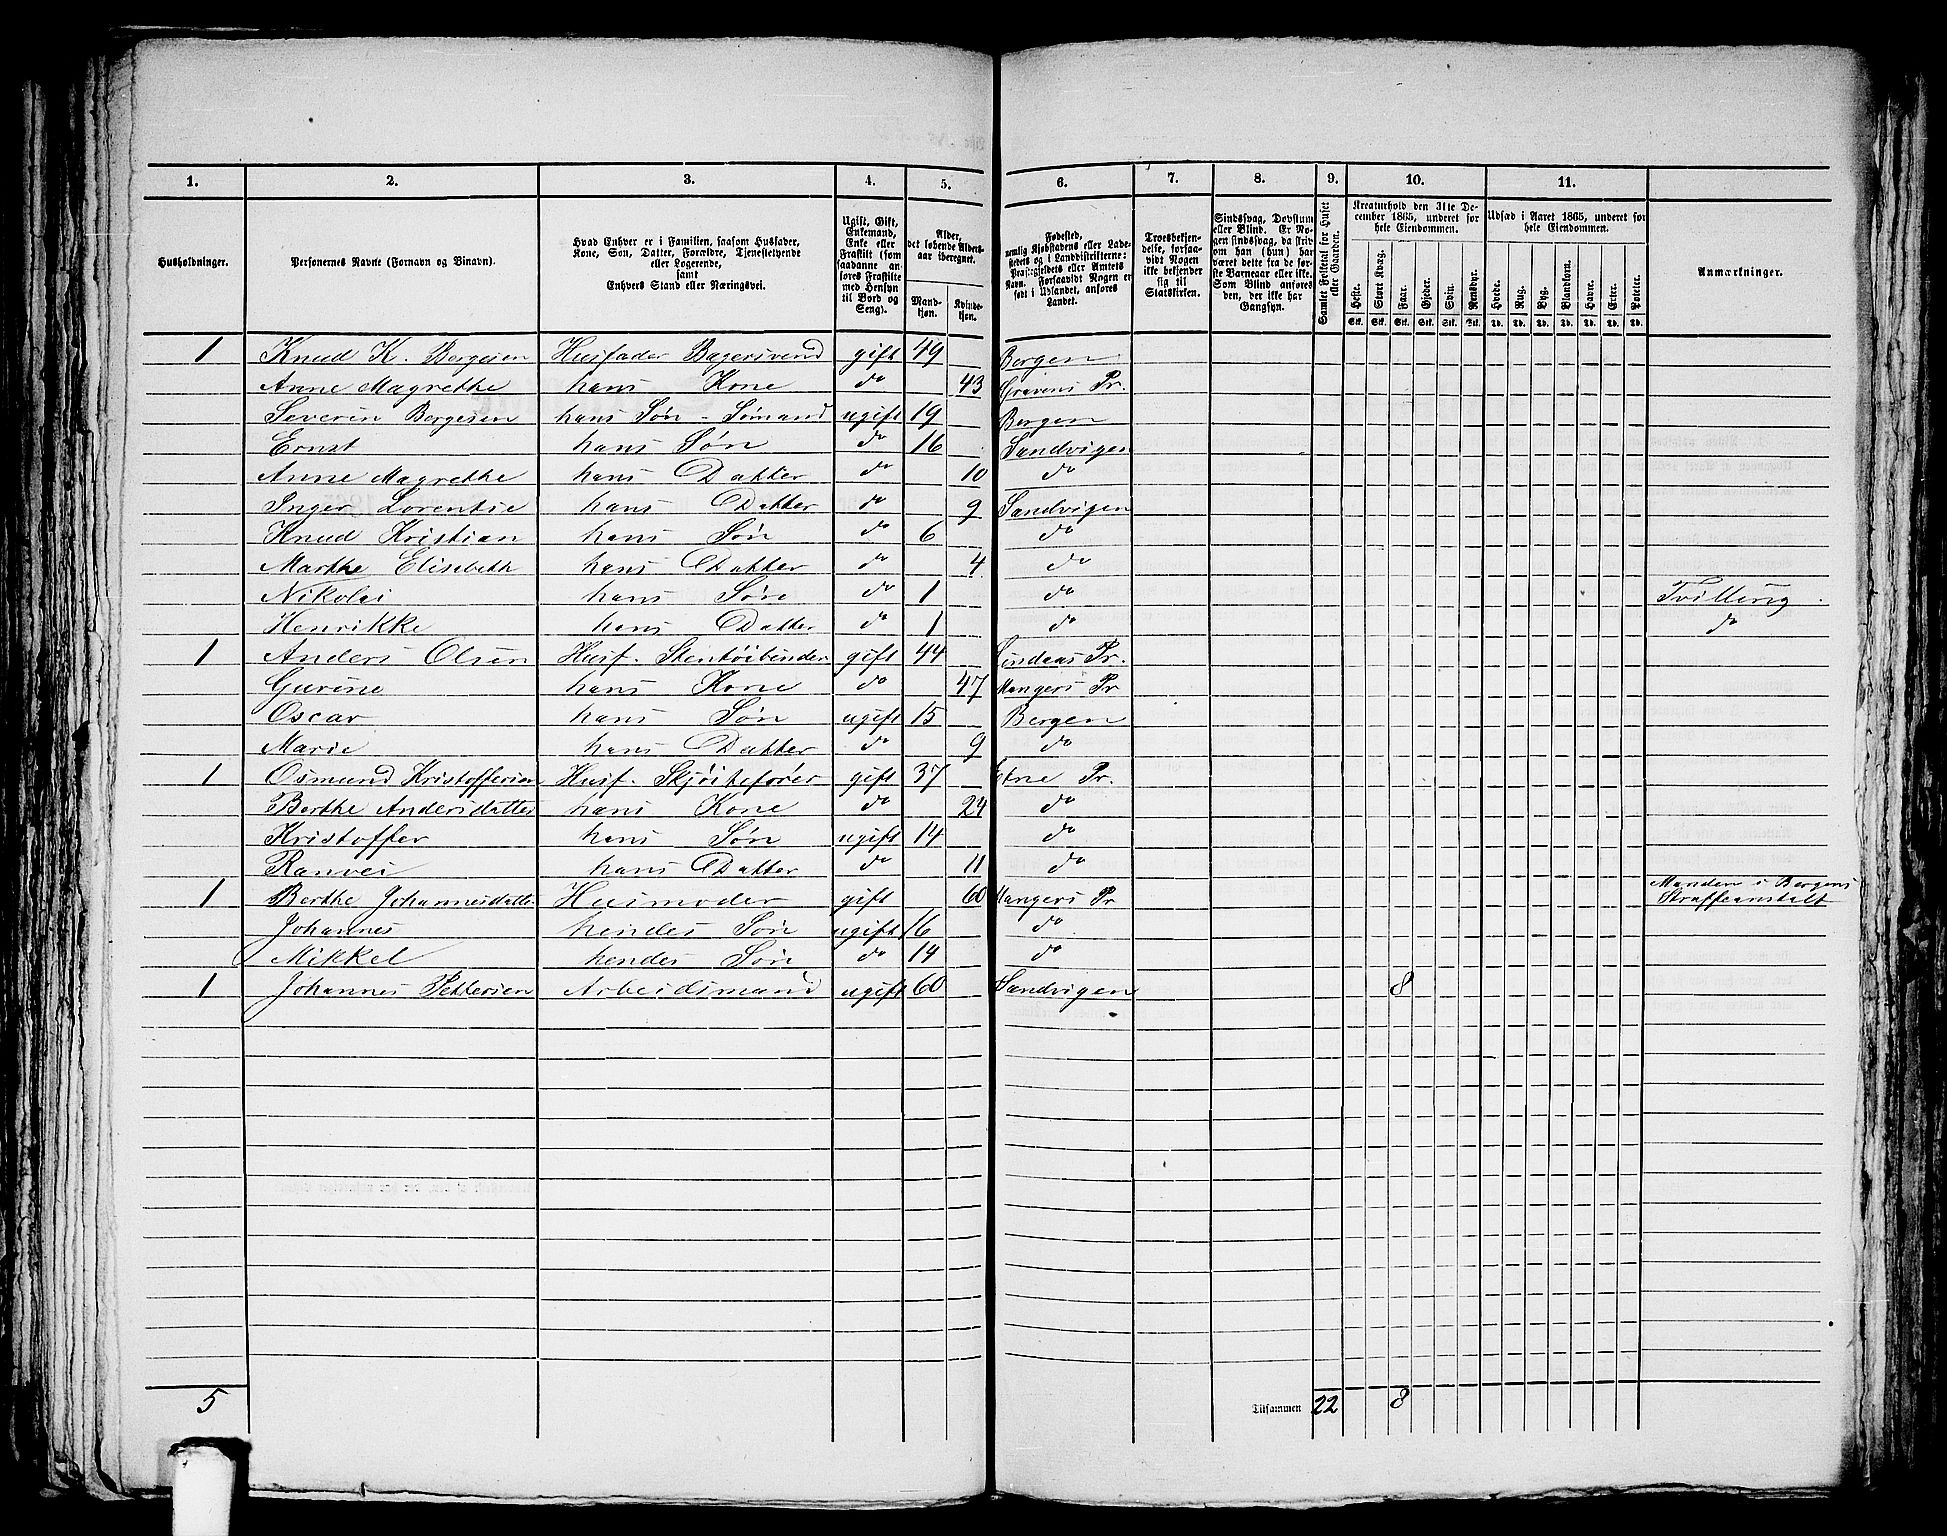 1. 2. 3. 4. 5. 6. 7. 8. 9. 10. 11.
Husholdninger. | Personernes Navne (Fornavn og Binavn). | Hvad Enhver er i Familien, saasom Husfader, Kone, Søn, Datter, Forældre, Tjenestetyende eller Logerende, samt Enhvers Stand eller Næringsvei. | Ugift, Gift, Enkemand, Enke eller Fraskilt (som saadanne anføres Fraskilte med Hensyn til Bord og Seng). | Alder, det løbende Aldersaar iberegnet. Mandkjøn. Kvindekjøn. | Fødested, nemlig Kjøbstadens eller Ladestedets og i Landdistrikterne: Præstegjeldets eller Amtets Navn. Forsaavidt Nogen er født i Udlandet, anføres Landet. | Troesbekjendelse, forsaavidt Nogen ikke bekjender sig til Statskirken. | Sindssvag, Døvstum eller Blind. Er Nogen sindssvag, da skrives om han (hun) har været dette fra de første Barneaar eller ikke. Som Blind anføres den, der ikke har Gangsyn. | Samlet Folketal for Huset eller Gaarden. | Kreaturhold den 31te December 1865, underet for hele Eiendommen. Heste. Stort Kvæg. Faar. Gjeder. Svin. Rensdyr. | Udsæd i Aaret 1865, underet for hele Eiendommen. Hvede. Rug. Byg. Blandkorn. Havre. Erter. Poteter. | Anmærkninger.
Stk. Stk. Stk. Stk. Stk. Stk. Td. Td. Td. Td. Td. Td. Td.
1 Knud K. Borgesen Husfader Bagersvend gift 49 Bergen
Anne Magrethe hans Kone do 43 Gravens Pr.
Severin Borgesen hans Søn - Sømand ugift 19 Bergen
Ernst hans Søn do 16 Sandvigen
Anne Magrethe hans Datter do 10 do
Inger Lorentse hans Datter do 9 Sandvigen
Knud Kristian hans Søn do 6 do
Marthe Elisebeth hans Datter do 4 do
Nikolai hans Søn do 1 do Tvilling
Henrikke hans Datter do 1 do do
1 Anders Olsen Husf. Stentøibinder gift 44 Lindaas Pr.
Gurine hans Kone do 47 Mangers Pr
Oscar hans Søn ugift 15 Bergen
Marie hans Datter do 9 do
1 Osmund Kristoffersen Husf. Skjøitefører gift 37 Etne Pr.
Berthe Andersdatter hans Kone do 24 do
Kristoffer hans Søn ugift 14 do
Ranvei hans Datter do 11 do
1 Berthe Johannesdatter Husmoder gift 60 Mangers Pr Manden i Bergens Straffeanstalt
Johannes hendes Søn ugift 16 do
Mikkel hendes Søn do 14 do
1 Johannes Pettersen Arbeidsmand ugift 60 Sandvigen 8
5 Tilsammen 22 8